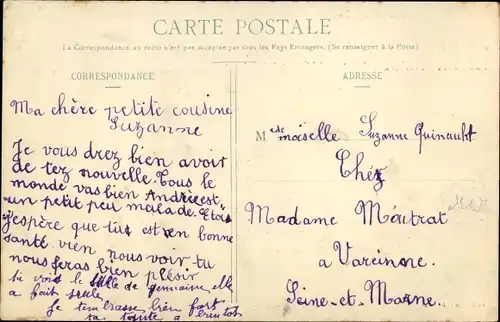 CARTE POSTALE
La Correspondance au recto n'est pas acceptée par tous les Pays Etrangers. (Se renseigner à la Poste)
CORRESPONDANCE
ADRESSE
Ma chère petite cousine
Suzanne
Je vous drez bien avoir
de tez nouvelle. Tous le
monde vas bien Andrée est
un petit peu malade.
J'espère que tu est en bonne
santé vien nous voir tu
nous feras bien plésir
tu vois le de Germaine elle
a fait seule
Je tembrasse bien fort
ta a bientot
Mademoiselle Suzanne Quinault
Chéz
Madame Méutrat
a Vareinne.
Seine-et-Marne.